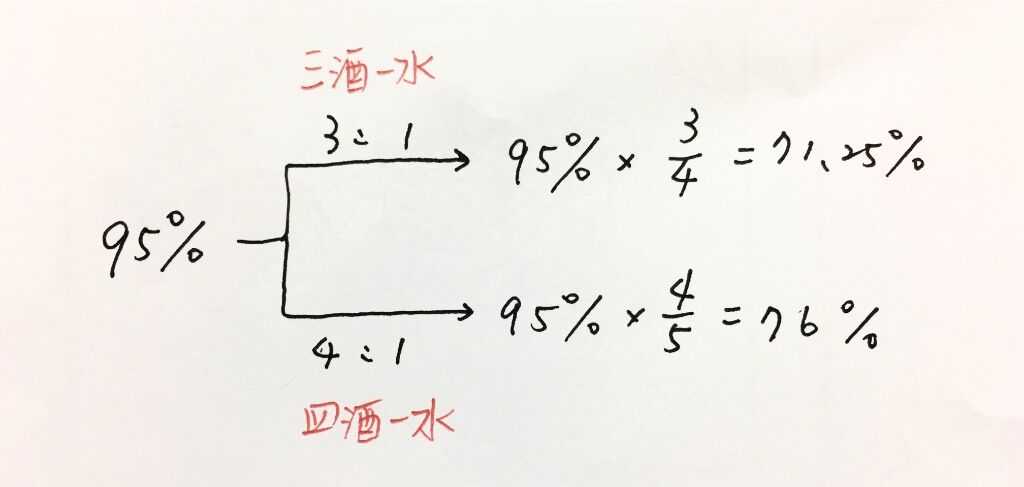 三酒一水
3:1
95% × 3/4 = 71.25%
95%
95% × 4/5 = 76%
4:1
四酒一水